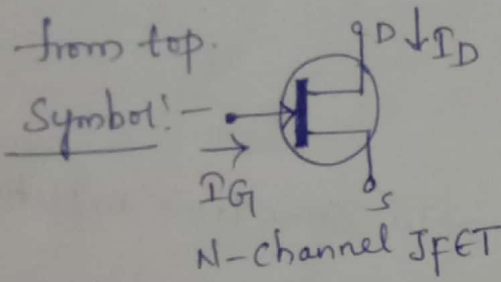 from top.
Symbol:-
D ↓ID
IG
S
N-Channel JFET